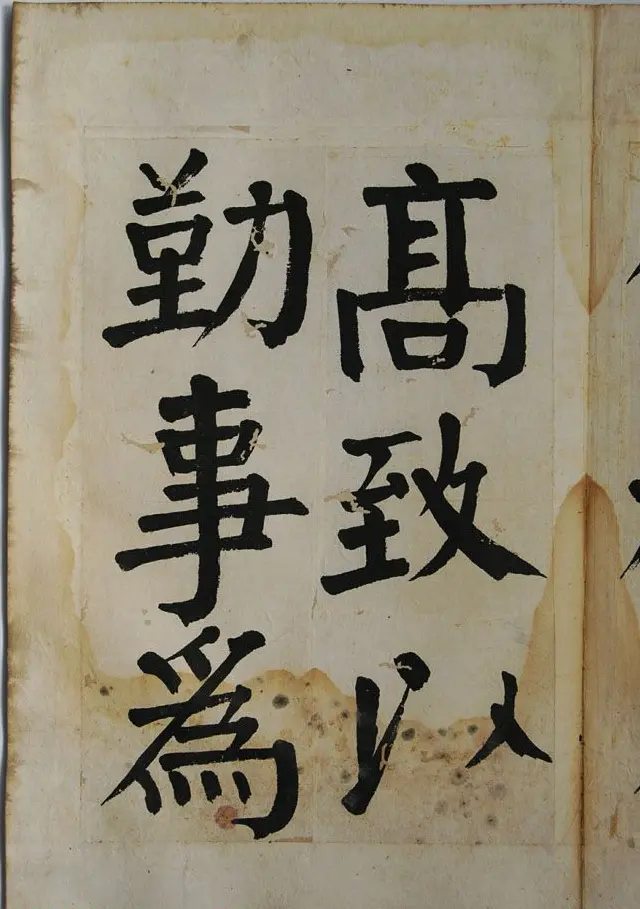 髙致以
勤事爲